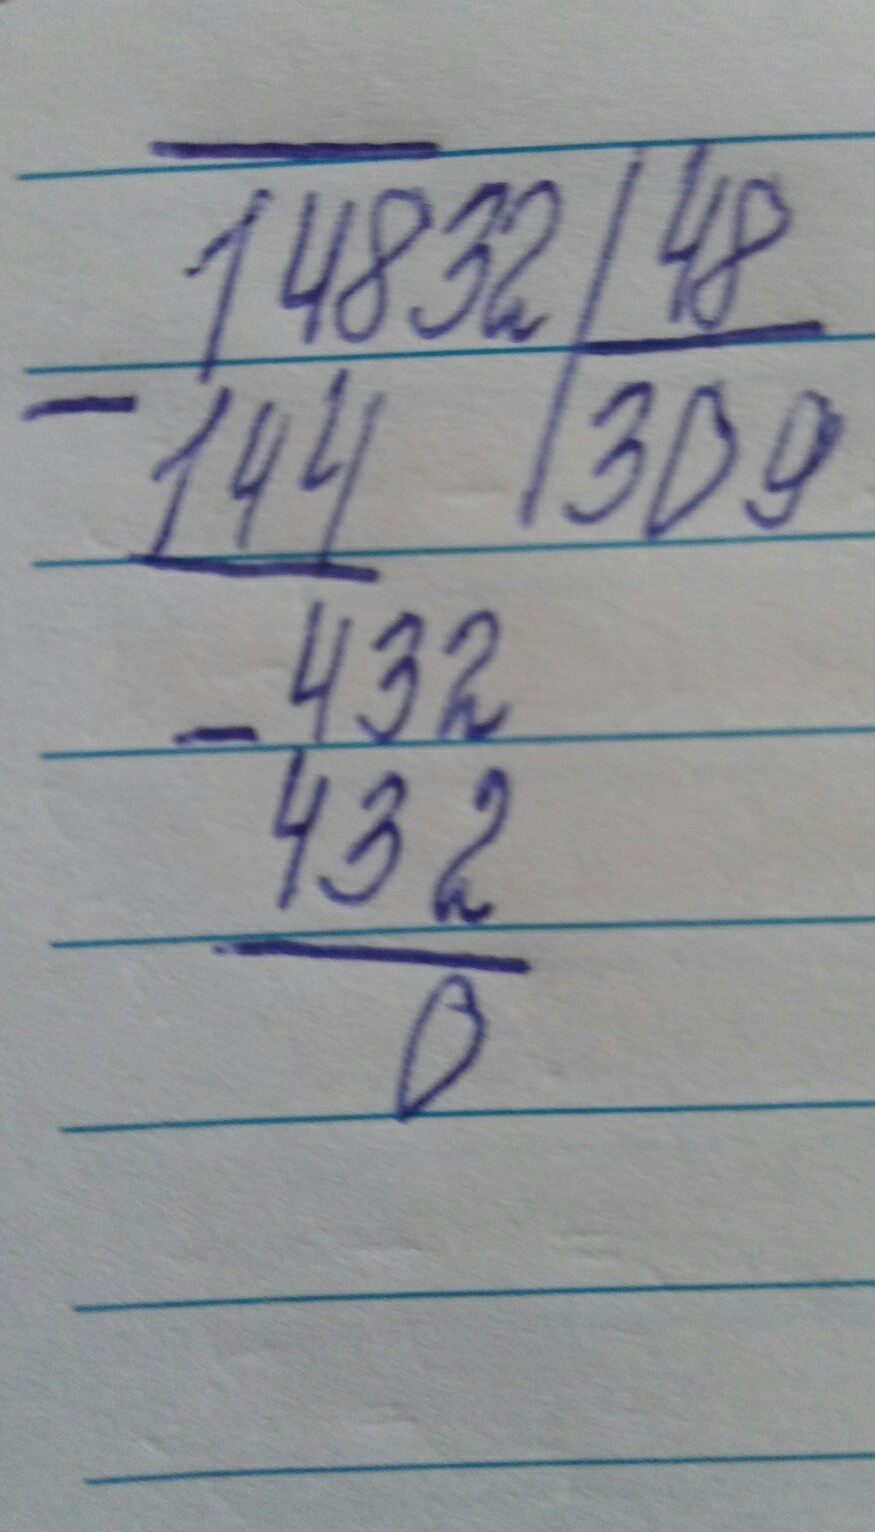 14832 48
- 144 309
- 432
432
0